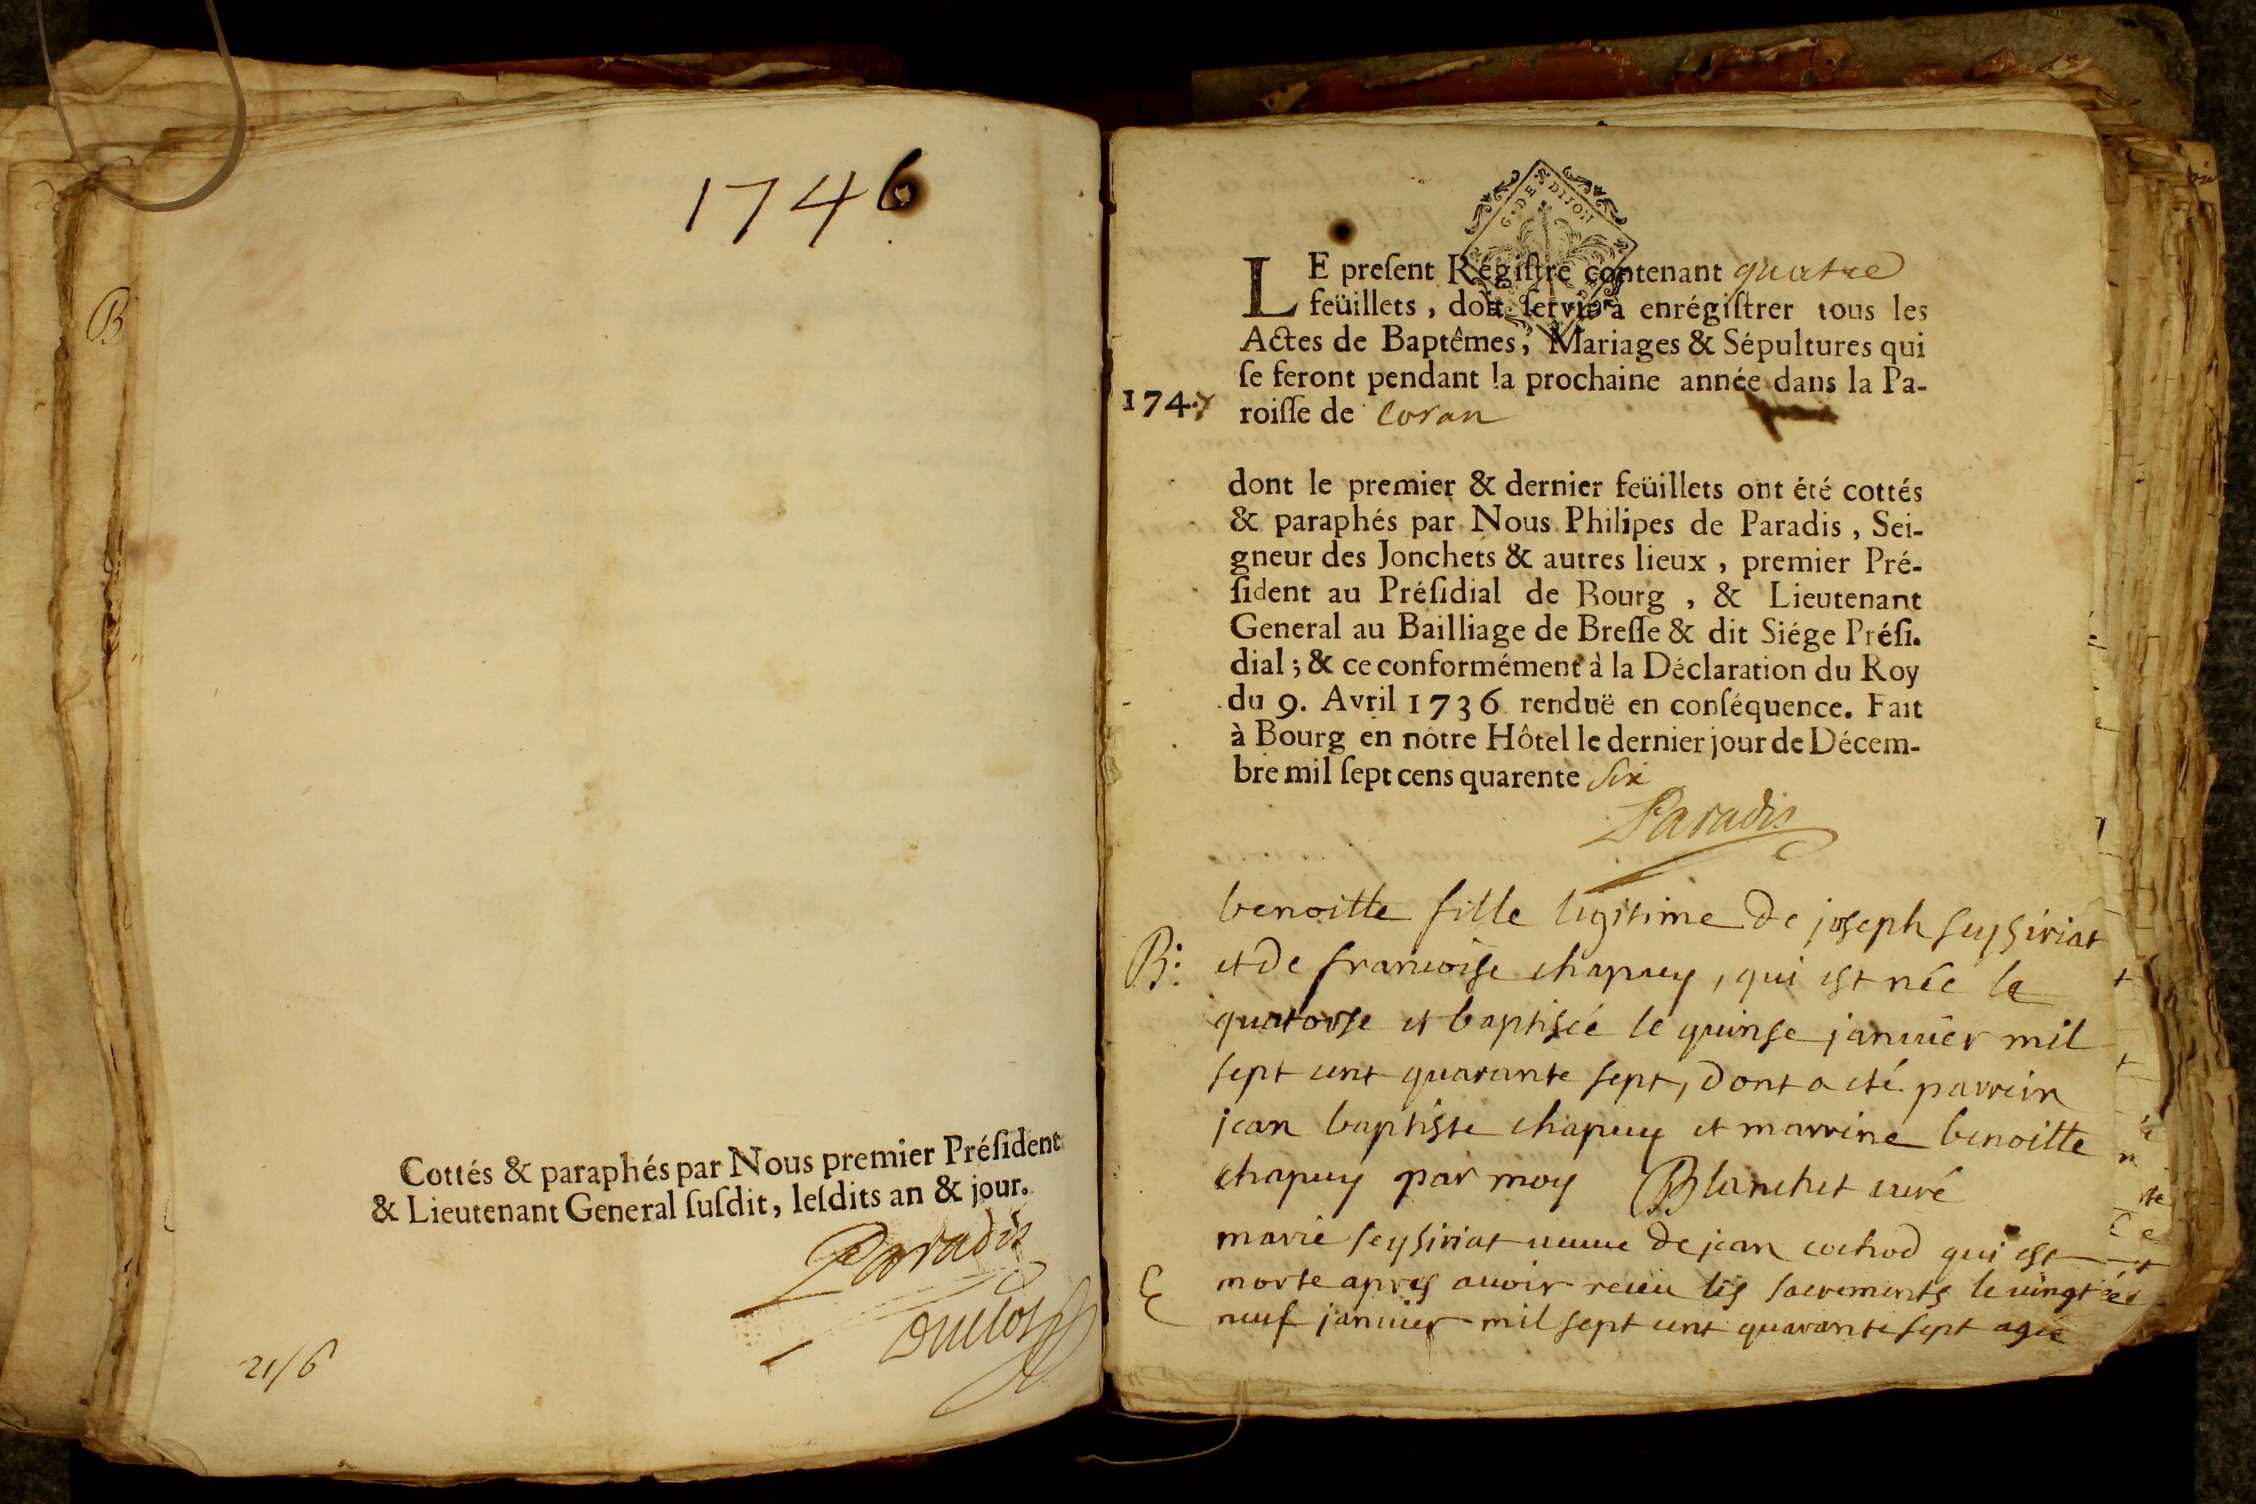 1746
Cottés & paraphés par Nous premier Préſident
& Lieutenant General ſuſdit, leſdits an & jour.
Paradis
Duclos
21/6
B
G. DE DIJON
LE preſent Régiſtre contenant quatre
feüillets, doit ſervir à enrégiſtrer tous les
Actes de Baptêmes, Mariages & Sépultures qui
ſe feront pendant la prochaine année dans la Pa-
1747 roiſſe de Coran
dont le premier & dernier feüillets ont été cottés
& paraphés par Nous Philipes de Paradis, Sei-
gneur des Jonchets & autres lieux, premier Pré-
ſident au Préſidial de Bourg, & Lieutenant
General au Bailliage de Breſſe & dit Siége Préſi-
dial; & ce conformément à la Déclaration du Roy
du 9. Avril 1736 renduë en conſéquence. Fait
à Bourg en nôtre Hôtel le dernier jour de Décem-
bre mil ſept cens quarente Six
Paradis
benoitte fille legitime de joseph seysiriat
B: et de francoise chapuy, qui est née le
quatorse et baptisée le quinse janvier mil
sept cent quarante sept, dont a eté parrein
jean baptiste chapuy et marrine benoitte
chapuy par moy Blanchet curé
marie seysiriat veuve de jean cochod qui est
morte apres avoir receu les sacrements le vingt
neuf janvier mil sept cent quarante sept agée